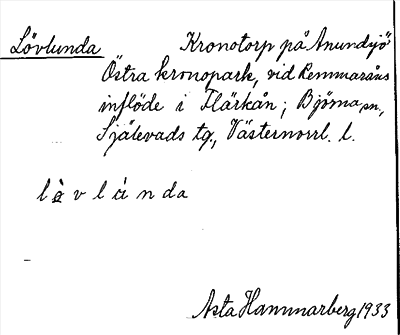 Lövlunda Kronotorp på Anundsjö
Östra kronopark, vid Remmaråns
inflöde i Flärkån; Björna sn,
Själevads tg., Västernorrl. l.
Asta Hammarberg 1933